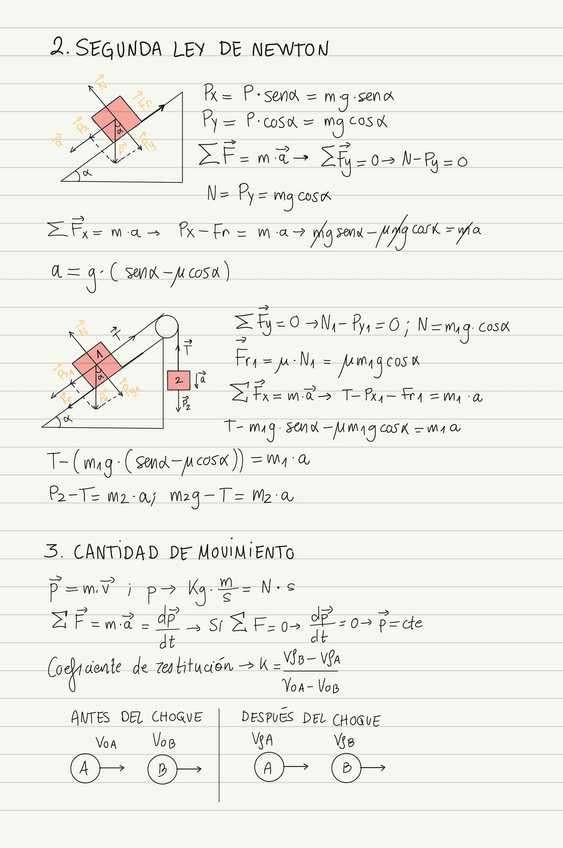 2. SEGUNDA LEY DE NEWTON
N Fr Px α P Py a α
Px = P · senα = m·g·senα
Py = P·cosα = mg cosα
∑F⃗ = m·a⃗ → ∑F⃗y = 0 → N-Py = 0
N = Py = mg cosα
∑F⃗x = m·a → Px - Fr = m·a → mg senα - μmg cosα = ma
a = g·(senα - μcosα)
N T⃗ 1 Px1 α Fr P1 Py1 α T⃗ 2 a⃗ P⃗2
∑F⃗y = 0 → N1 - Py1 = 0 ; N = m1g·cosα
F⃗r1 = μ·N1 = μm1g cosα
∑F⃗x = m·a⃗ → T - Px1 - Fr1 = m1·a
T - m1g·senα - μm1g cosα = m1a
T - (m1g·(senα - μcosα)) = m1·a
P2 - T = m2·a; m2g - T = m2·a
3. CANTIDAD DE MOVIMIENTO
p⃗ = m.v⃗ ; p → Kg·m/s = N·s
∑F⃗ = m·a⃗ = dp⃗/dt → Si ∑F = 0 → dp⃗/dt = 0 → p⃗ = cte
Coeficiente de restitución → K = VfB - VfA / VOA - VOB
ANTES DEL CHOQUE
VOA VOB
A B
DESPUÉS DEL CHOQUE
VfA VfB
A B